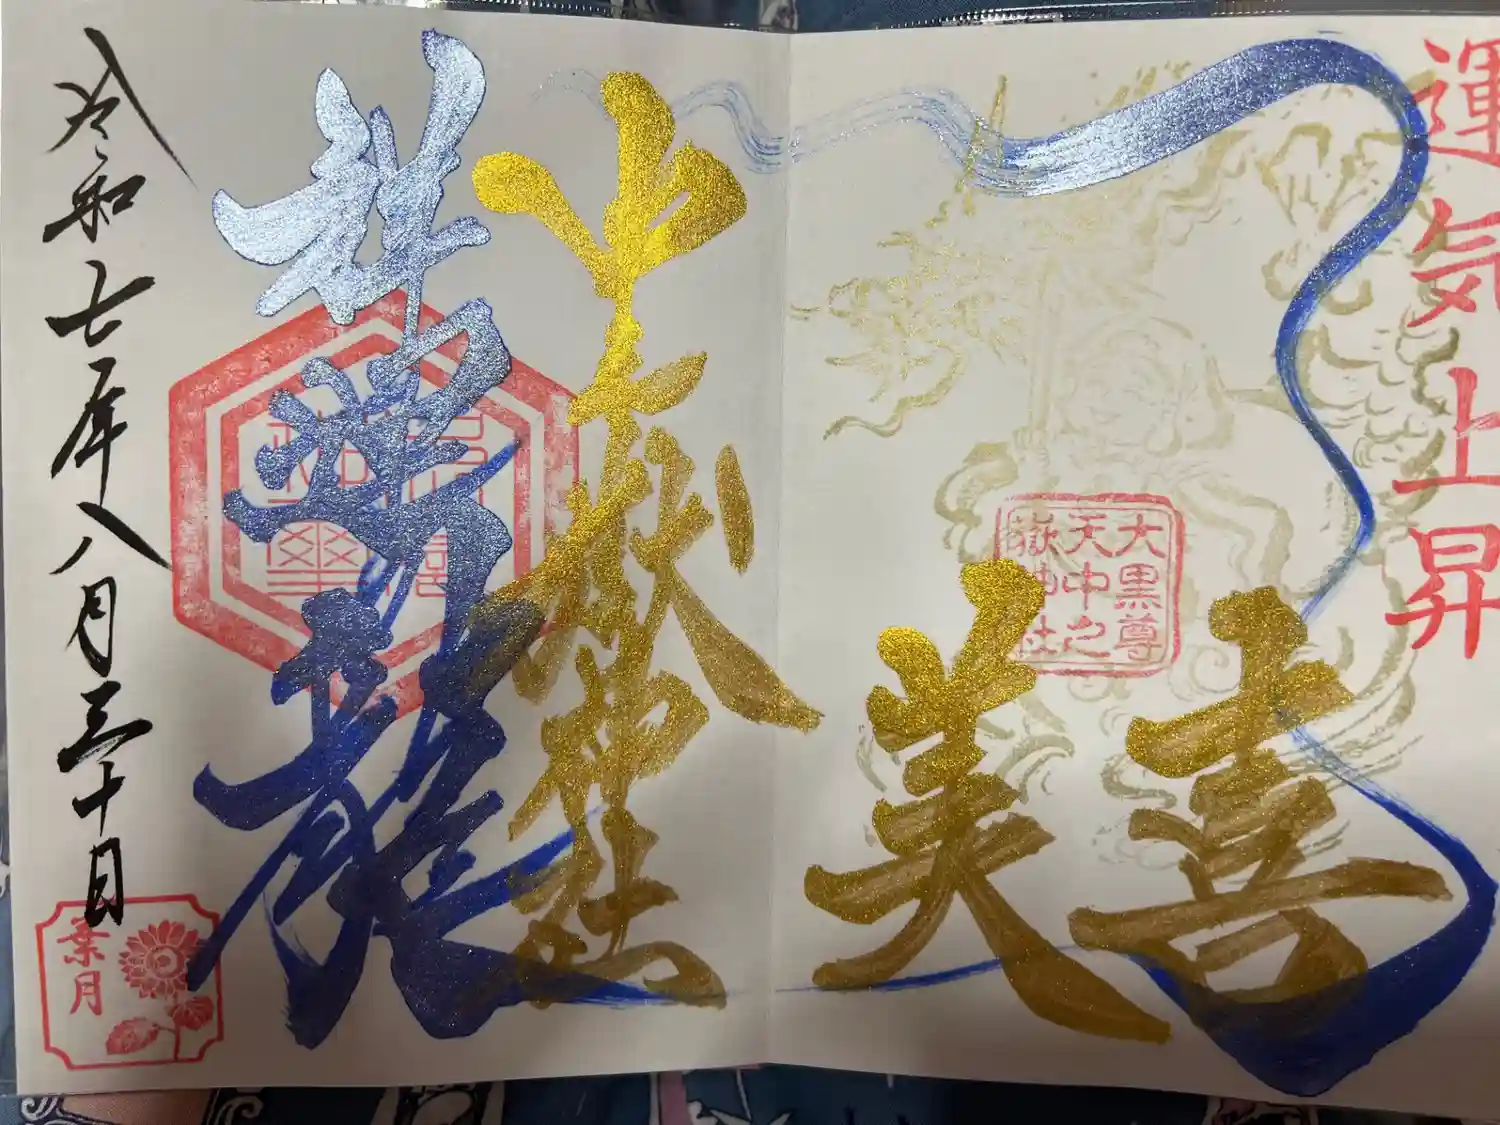 運気上昇
喜
美
大黒尊
天中之
嶽神社
中之嶽神社
龍
令和七年八月三十日
葉月